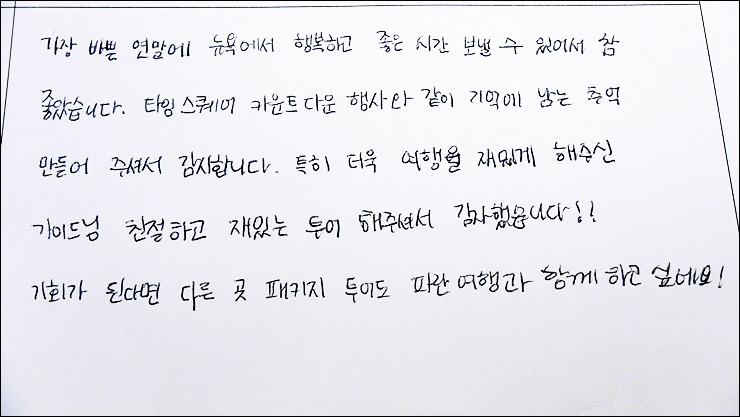 가장 바쁜 연말에 뉴욕에서 행복하고 좋은 시간 보낼 수 있어서 참
좋았습니다. 타임스퀘어 카운트다운 행사와 같이 기억에 남는 추억
만들어 주셔서 감사합니다. 특히 더욱 여행을 재밌게 해주신
가이드님 친절하고 재있는 투어 해주셔서 감사했습니다!!
기회가 된다면 다른 곳 패키지 투어도 파란여행과 함께하고 싶네요!